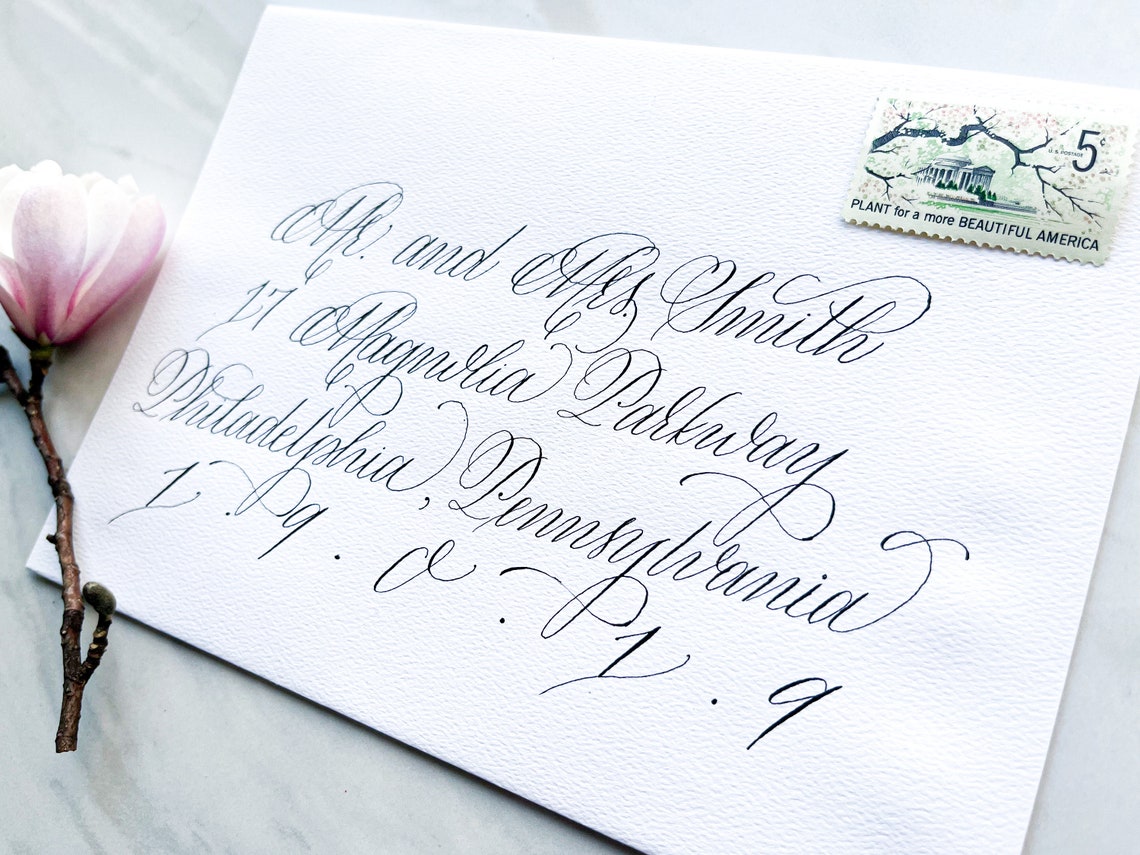 5¢
U.S. POSTAGE
PLANT for a more BEAUTIFUL AMERICA
Mr. and Mrs. Smith
17 Magnolia Parkway
Philadelphia, Pennsylvania
1 . 9 . 0 . 1 . 9